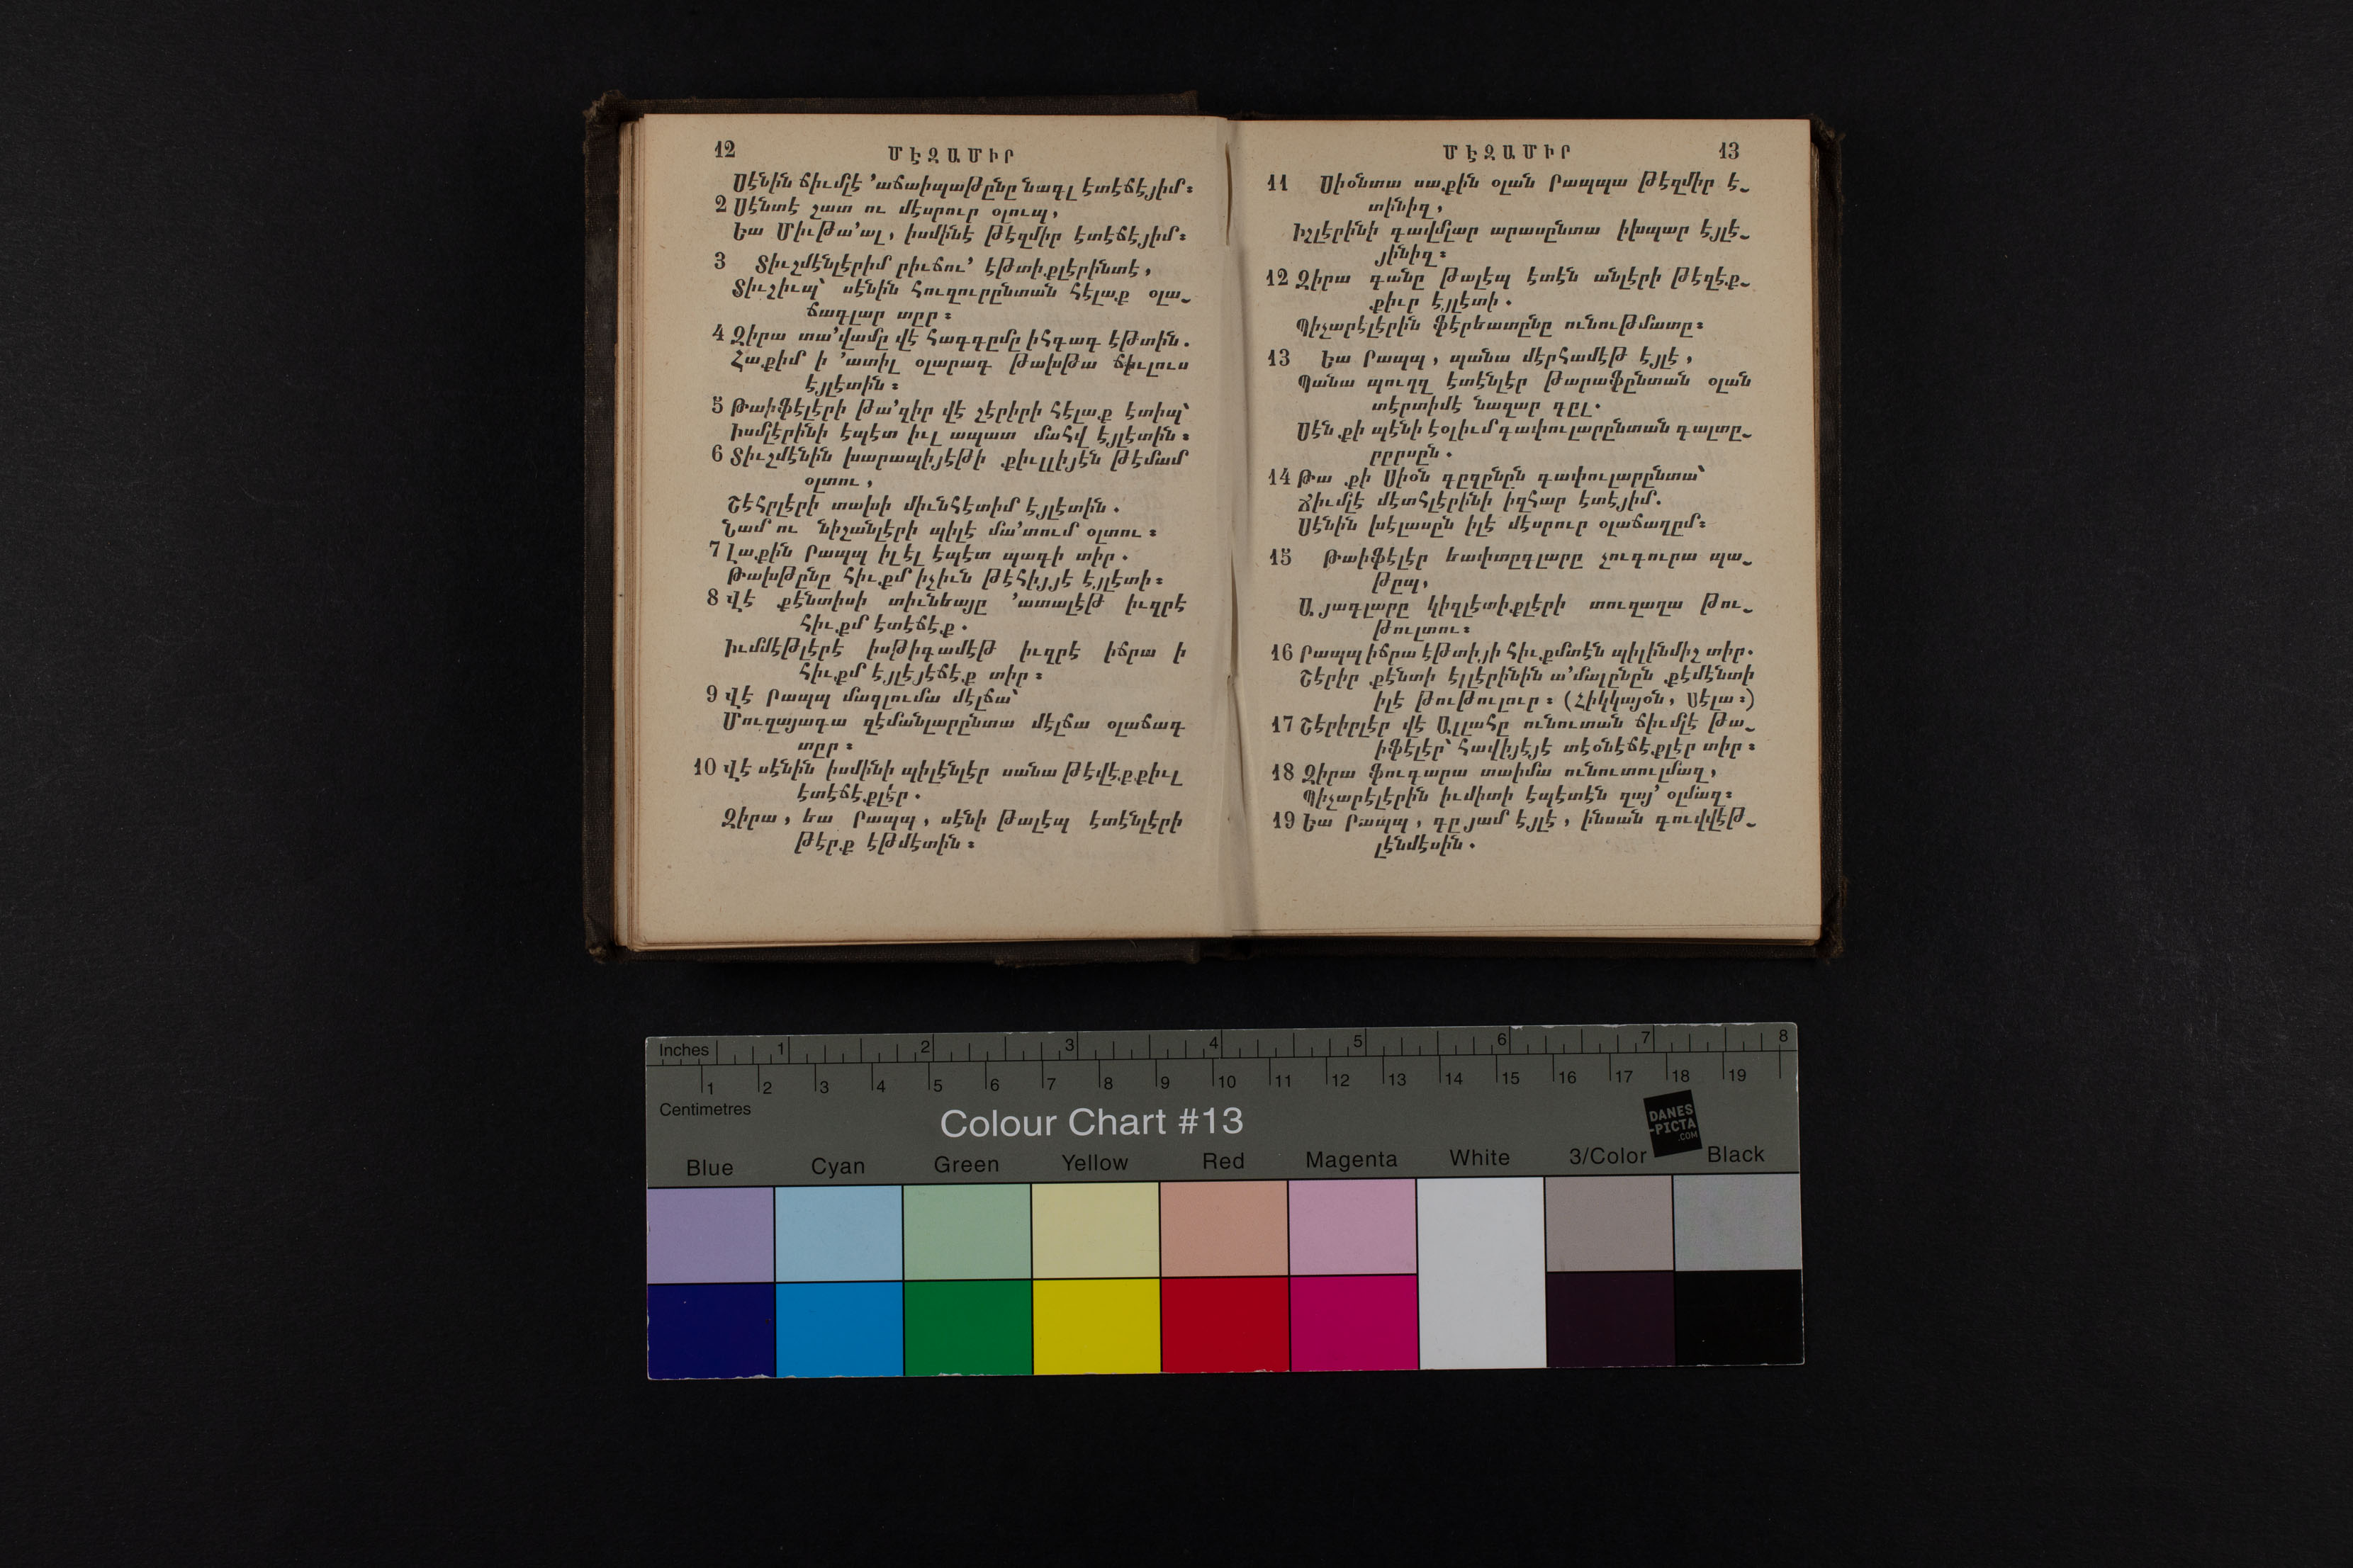 12 ՄԷԶԱՄԻՐ
Սէնին ճիւմլէ ՚աճաիպաթընը նագլ էտէճէյիմ։
2 Սէնտէ շատ ու մէսրուր օլուպ,
Եա Միւթա՚ալ, իսմինէ թէզմիր էտէճէյիմ։
3 Տիւշմէնլէրիմ րիւճու՚ էթտիքլէրինտէ,
Տիւշիւպ՝ սէնին հուզուրընտան հէլաք օլա֊
ճագլար տըր։
4 Զիրա տա՚վամը վէ հագգըմը իհգագ էթտին.
Հաքիմ ի ՚ատիլ օլարագ թախթա ճիւլուս
էյլէտին։
5 Թաիֆէլէրի թա՚զիր վէ շէրիրի հէլաք էտիպ՝
Իսմլէրինի էպէտ իւլ ապատ մահվ էյլէտին։
6 Տիւշմէնին խարապիյէթի քիւլլիյէն թէմամ
օլտու,
Շէհրլէրի տախի միւնհէտիմ էյլէտին.
Նամ ու նիշանլէրի պիլէ մա՚տում օլտու։
7 Լաքին Րապպ իլ էլ էպէտ պագի տիր.
Թախթընը հիւքմ իչիւն թէհիյյէ էյլէտի։
8 Վէ քէնտիսի տիւնեայը ՚ատալէթ իւզրէ
հիւքմ էտէճէք.
Իւմմէթլէրէ իսթիգամէթ իւզրէ իճրա ի
հիւքմ էյլէյէճէք տիր։
9 Վէ Րապպ մազլումա մէլճա՝
Մուզայագա զէմանլարընտա մէլճա օլաճագ
տըր։
10 Վէ սէնին իսմինի պիլէնլէր սանա թէվէքքիւլ
էտէճէքլէր.
Զիրա, եա Րապպ, սէնի թալէպ էտէնլէրի
թէրք էթմէտին։
ՄԷԶԱՄԻՐ 13
11 Սիօնտա սաքին օլան Րապպա թէզմիր է֊
տինիզ,
Իշլէրինի գավմլար արասընտա իխպար էյլէ֊
յինիզ։
12 Զիրա գանը թալէպ էտէն անլէրի թէզէք֊
քիւր էյլէտի.
Պիչարէլէրին ֆէրեատընը ունութմատը։
13 Եա Րապպ, պանա մէրհամէթ էյլէ,
Պանա պուղզ էտէնլէր թարաֆընտան օլան
տէրտիմէ նազար գըլ.
Սէն քի պէնի էօլիւմ գափուլարընտան գալտը֊
րըրսըն.
14 Թա քի Սիօն գըզընըն գափուլարընտա՝
Ճիւմլէ մէտհլէրինի իզհար էտէյիմ.
Սէնին խէլասըն իլէ մէսրուր օլաճաղըմ։
15 Թաիֆէլէր եափտըգլարը չուգուրա պա֊
թըպ,
Ա յագլարը կիզլէտիքլէրի տուզաղա թու֊
թուլտու։
16 Րապպ իճրա էթտիյի հիւքմտէն պիլինմիշ տիր.
Շէրիր քէնտի էլլէրինին ա՚մալընըն քէմէնտի
իլէ թութուլուր։ (Հիկկայօն, Սէլա։)
17 Շէրիրլէր վէ Ալլահը ունուտան ճիւմլէ թա֊
իֆէլէր՝ հավիյէյէ տէօնէճէքլէր տիր։
18 Զիրա ֆուգարա տաիմա ունուտուլմազ,
Պիչարէլէրին իւմիտի էպէտէն զայ՚ օլմազ։
19 Եա Րապպ, գըյամ էյլէ, ինսան գուվվէթ֊
լէնմէսին.
Inches 1 2 3 4 5 6 7 8
1 2 3 4 5 6 7 8 9 10 11 12 13 14 15 16 17 18 19
Centimetres
Colour Chart #13
DANES
-PICTA
.COM
Blue Cyan Green Yellow Red Magenta White 3/Color Black